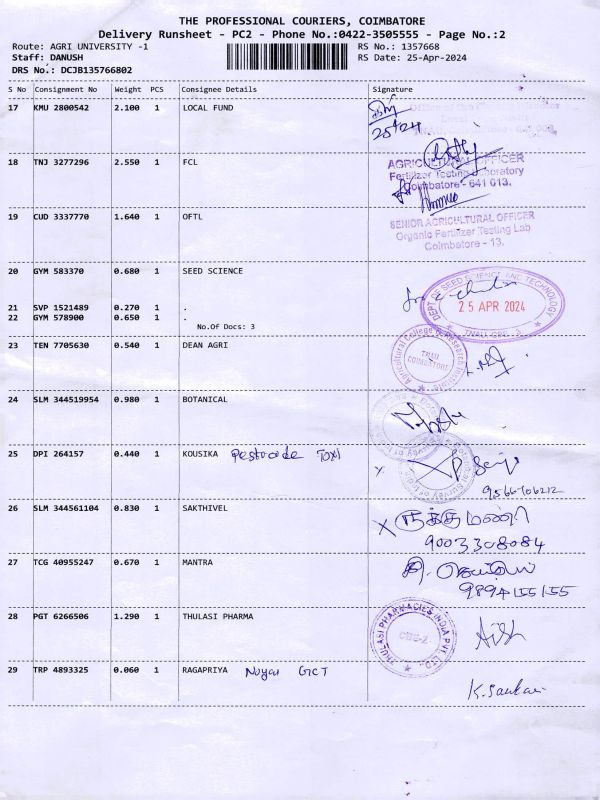 THE PROFESSIONAL COURIERS, COIMBATORE
Delivery Runsheet - PC2 - Phone No.:0422-3505555 - Page No.:2
Route: AGRI UNIVERSITY -1
Staff: DANUSH
DRS No.: DCJB135766802
RS No.: 1357668
RS Date: 25-Apr-2024
S No Consignment No Weight PCS Consignee Details Signature
17 KMU 2800542 2.100 1 LOCAL FUND
18 TNJ 3277296 2.550 1 FCL
AGRICULTURAL OFFICER
Fertilizer Testing Laboratory
Coimbatore - 641 013.
19 CUD 3337770 1.640 1 OFTL
SENIOR AGRICULTURAL OFFICER
Organic Fertilizer Testing Lab
Coimbatore - 13.
20 GYM 583370 0.680 1 SEED SCIENCE
DEPT OF SEED SCIENCE AND TECHNOLOGY
25 APR 2024
21 SVP 1521489 0.270 1 .
22 GYM 578900 0.650 1 .
No.Of Docs: 3
23 TEN 7705630 0.540 1 DEAN AGRI
Agricultural College & Research Institute
TNAU
COIMBATORE
24 SLM 344519954 0.980 1 BOTANICAL
25 DPI 264157 0.440 1 KOUSIKA
x
9566706212
26 SLM 344561104 0.830 1 SAKTHIVEL
X
9003308084
27 TCG 40955247 0.670 1 MANTRA
9894155155
28 PGT 6266506 1.290 1 THULASI PHARMA
THULASI PHARMACIES INDIA PVT. LTD.
CBE-2
29 TRP 4893325 0.060 1 RAGAPRIYA
K. Sankar